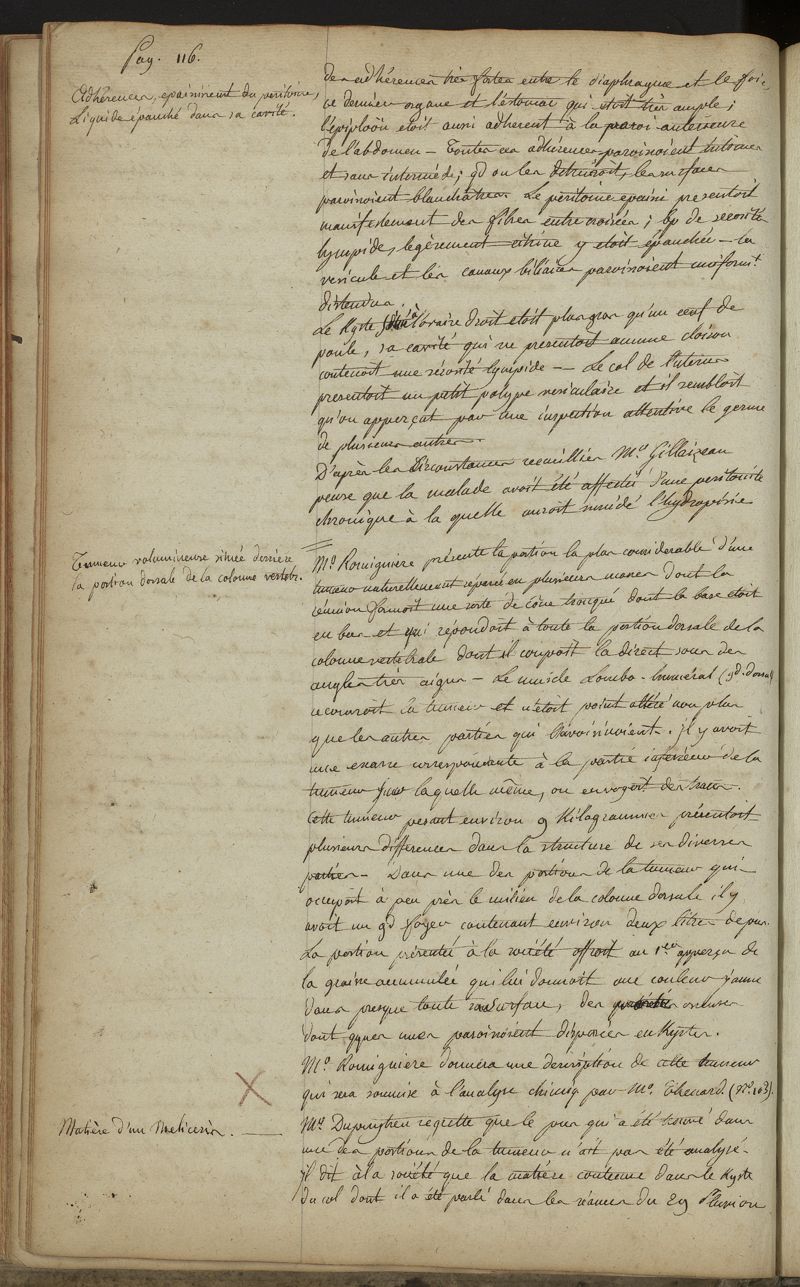 Pag. 116.
Adhérences, epaississement du peritoine,
Liquide épanché dans sa cavité.
des adhérences très fortes entre le diaphragme et le foie
ce dernier organe et l'estomac qui étoit très ample ;
l'épiploön etoit aussi adherent à la paroi anterieure
de l'abdomen - Toutes ces adhérences paroissoient intimes
et sans intermède ; qd on les détruisoit, les surfaces
paroissoient blanchâtres. Le péritoine epaissi presentoit
manifestement des fibres entrecroisées ; bp de serosité
lympide, legèrement citrine y etoit épanchée - la
vesicule et les canaux biliaires paroissoient uniformt
distendus.
Le Kyste situé à l'ovaire droit etoit plus gros qu'un œuf de
poule, sa cavité qui ne presentoit aucune cloison
contenoit une sérosité lympide - Le col de l'uterus
presentoit un petit polype vesiculaire et il sembloit
qu'on apperçut par une inspection attentive le germe
de plusieurs autres.
D'après les circonstances recueillies Mr. Gillaizeau
pense que la malade avoit été affectée d'une peritonite
chronique à la quelle auroit succédé l'hydropisie
Tumeur volumineuse située derriere
la portion dorsale de la colonne vertebr.
Mr. Romiguiere présente la portion la plus considerable d'une
tumeur naturellement separée en plusieurs masses dont la
réunion formoit une sorte de cône tronqué dont la base étoit
en bas et qui répondoit à toute la portion dorsale de la
colonne vertébrale dont il coupoit la direct. sous des
angles très aigus - Le muscle Lombo-huméral (gd. dorsal)
recouvroit la tumeur et n'étoit point altéré non plus
que les autres parties qui l'avoisinoient. il y avoit
une escarre correspondante à la partie inferieure de la
tumeur sur laquelle même, on en voyoit des traces.
Cette tumeur pesant environ 9 Kilogrammes présentoit
plusieurs différences dans la structure de ses diverses
parties - Dans une des portions de la tumeur qui
occupoit à peu près le milieu de la colonne dorsale il y
avoit un gd foyer contenant environ deux litres de pus.
La portion présentée à la société offroit au 1er apperçu de
la graisse accumulée qui lui donnoit une couleur jaune
dans presque toute sa surface, des osseuses
dont qques unes paroissoient disposées en Kystes.
Mr. Romiguiere donnera une description de cette tumeur
qui sera soumise à l'analyse chimiq. par Mr. Thenard. (No. 103).
Matière d'un Meliceris.
Mr. Dupuytren regrette que le pus qui a été trouvé dans
une des portions de la tumeur n'ait pas été analysé.
il dit à la société que la matière contenue dans le Kyste
du col dont il a été parlé dans les séances du 29 Pluviose